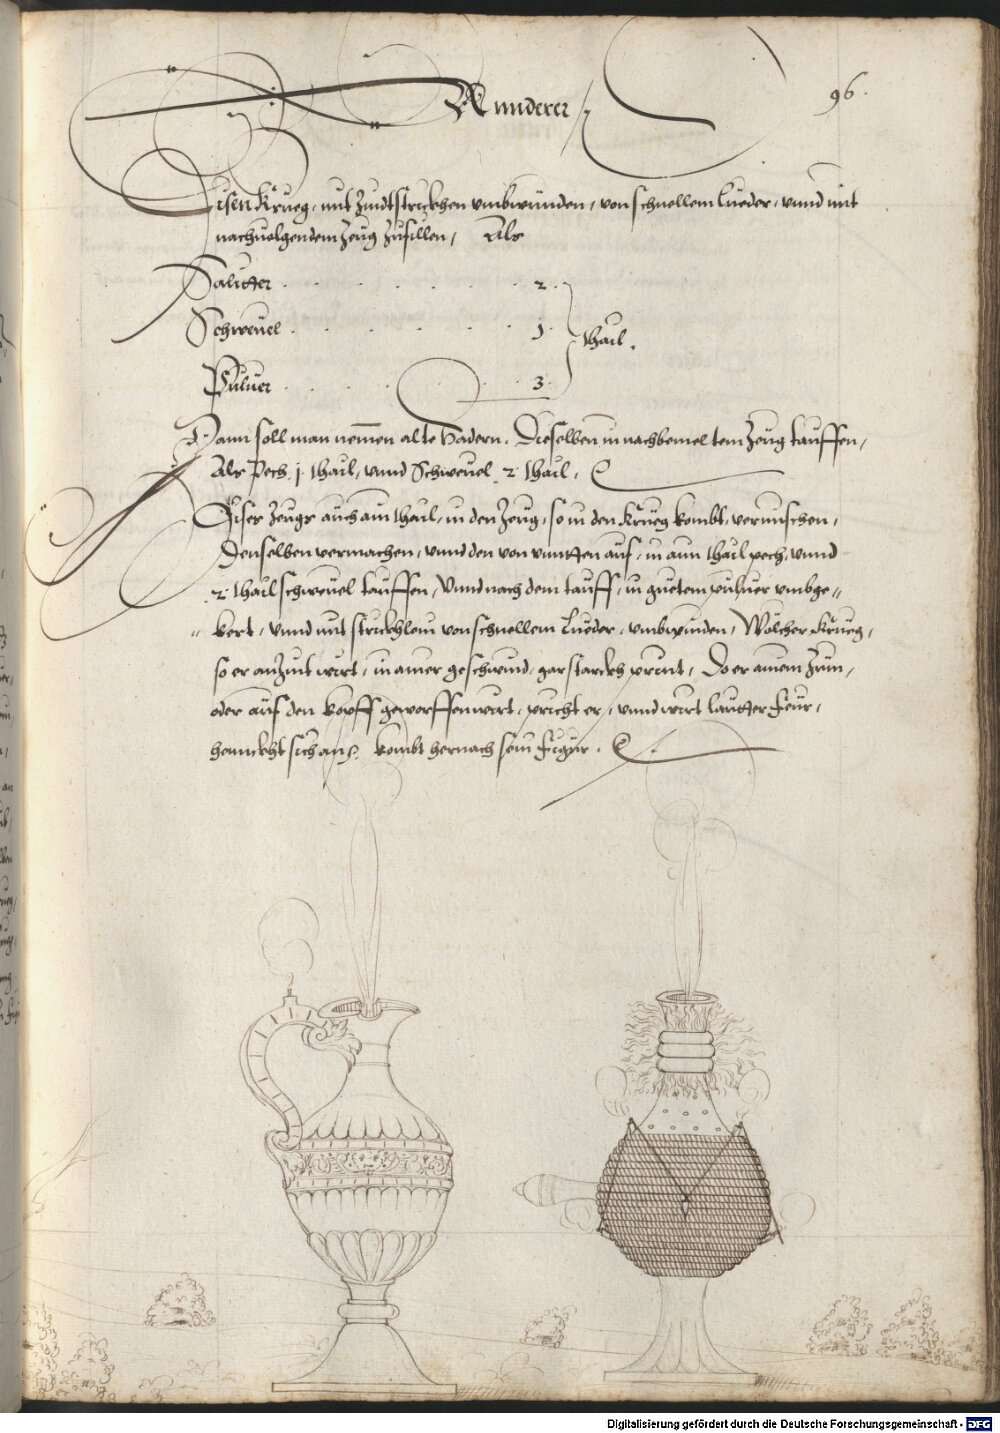 Annderer /
96.
Disen Krueg, mit Zündtstrickhen vmbwunden, von schnellem Lueder, vnnd mit
nachuolgendem Zeug Zufillen, Als
Salitter . . . . . . 2.
Schweuel . . . . . . 1.
thail.
Puluer . . . . . 3.
Dann soll man nemmen alte Hadern. Dieselben in nachbemeltem Zeug tauffen,
Als Pech 1 thail, vnnd Schweuel 2 thail,
Diser Zeugs auch ain thail, in den Zeug, so in den Krueg kombt, vermischen,
Denselben vermachen, vnnd den von vnntten auf, in ain thail pech, vnnd
2 thail schweuel tauffen, Vnnd nach dem tauff, in guetem puluer vmbge-
kert, vnnd mit strickhlein von schnellem Lueder, vmbwinden, Wölcher Krueg,
so er anZint wirt, in ainer geschwind, gar starckh print, So er ainem Zum,
oder auf den kopff geworffen wirt, pricht er, vnnd wirt lautter feur,
hennckht sich ans. kombt hernach sein figur.
Digitalisierung gefördert durch die Deutsche Forschungsgemeinschaft - DFG